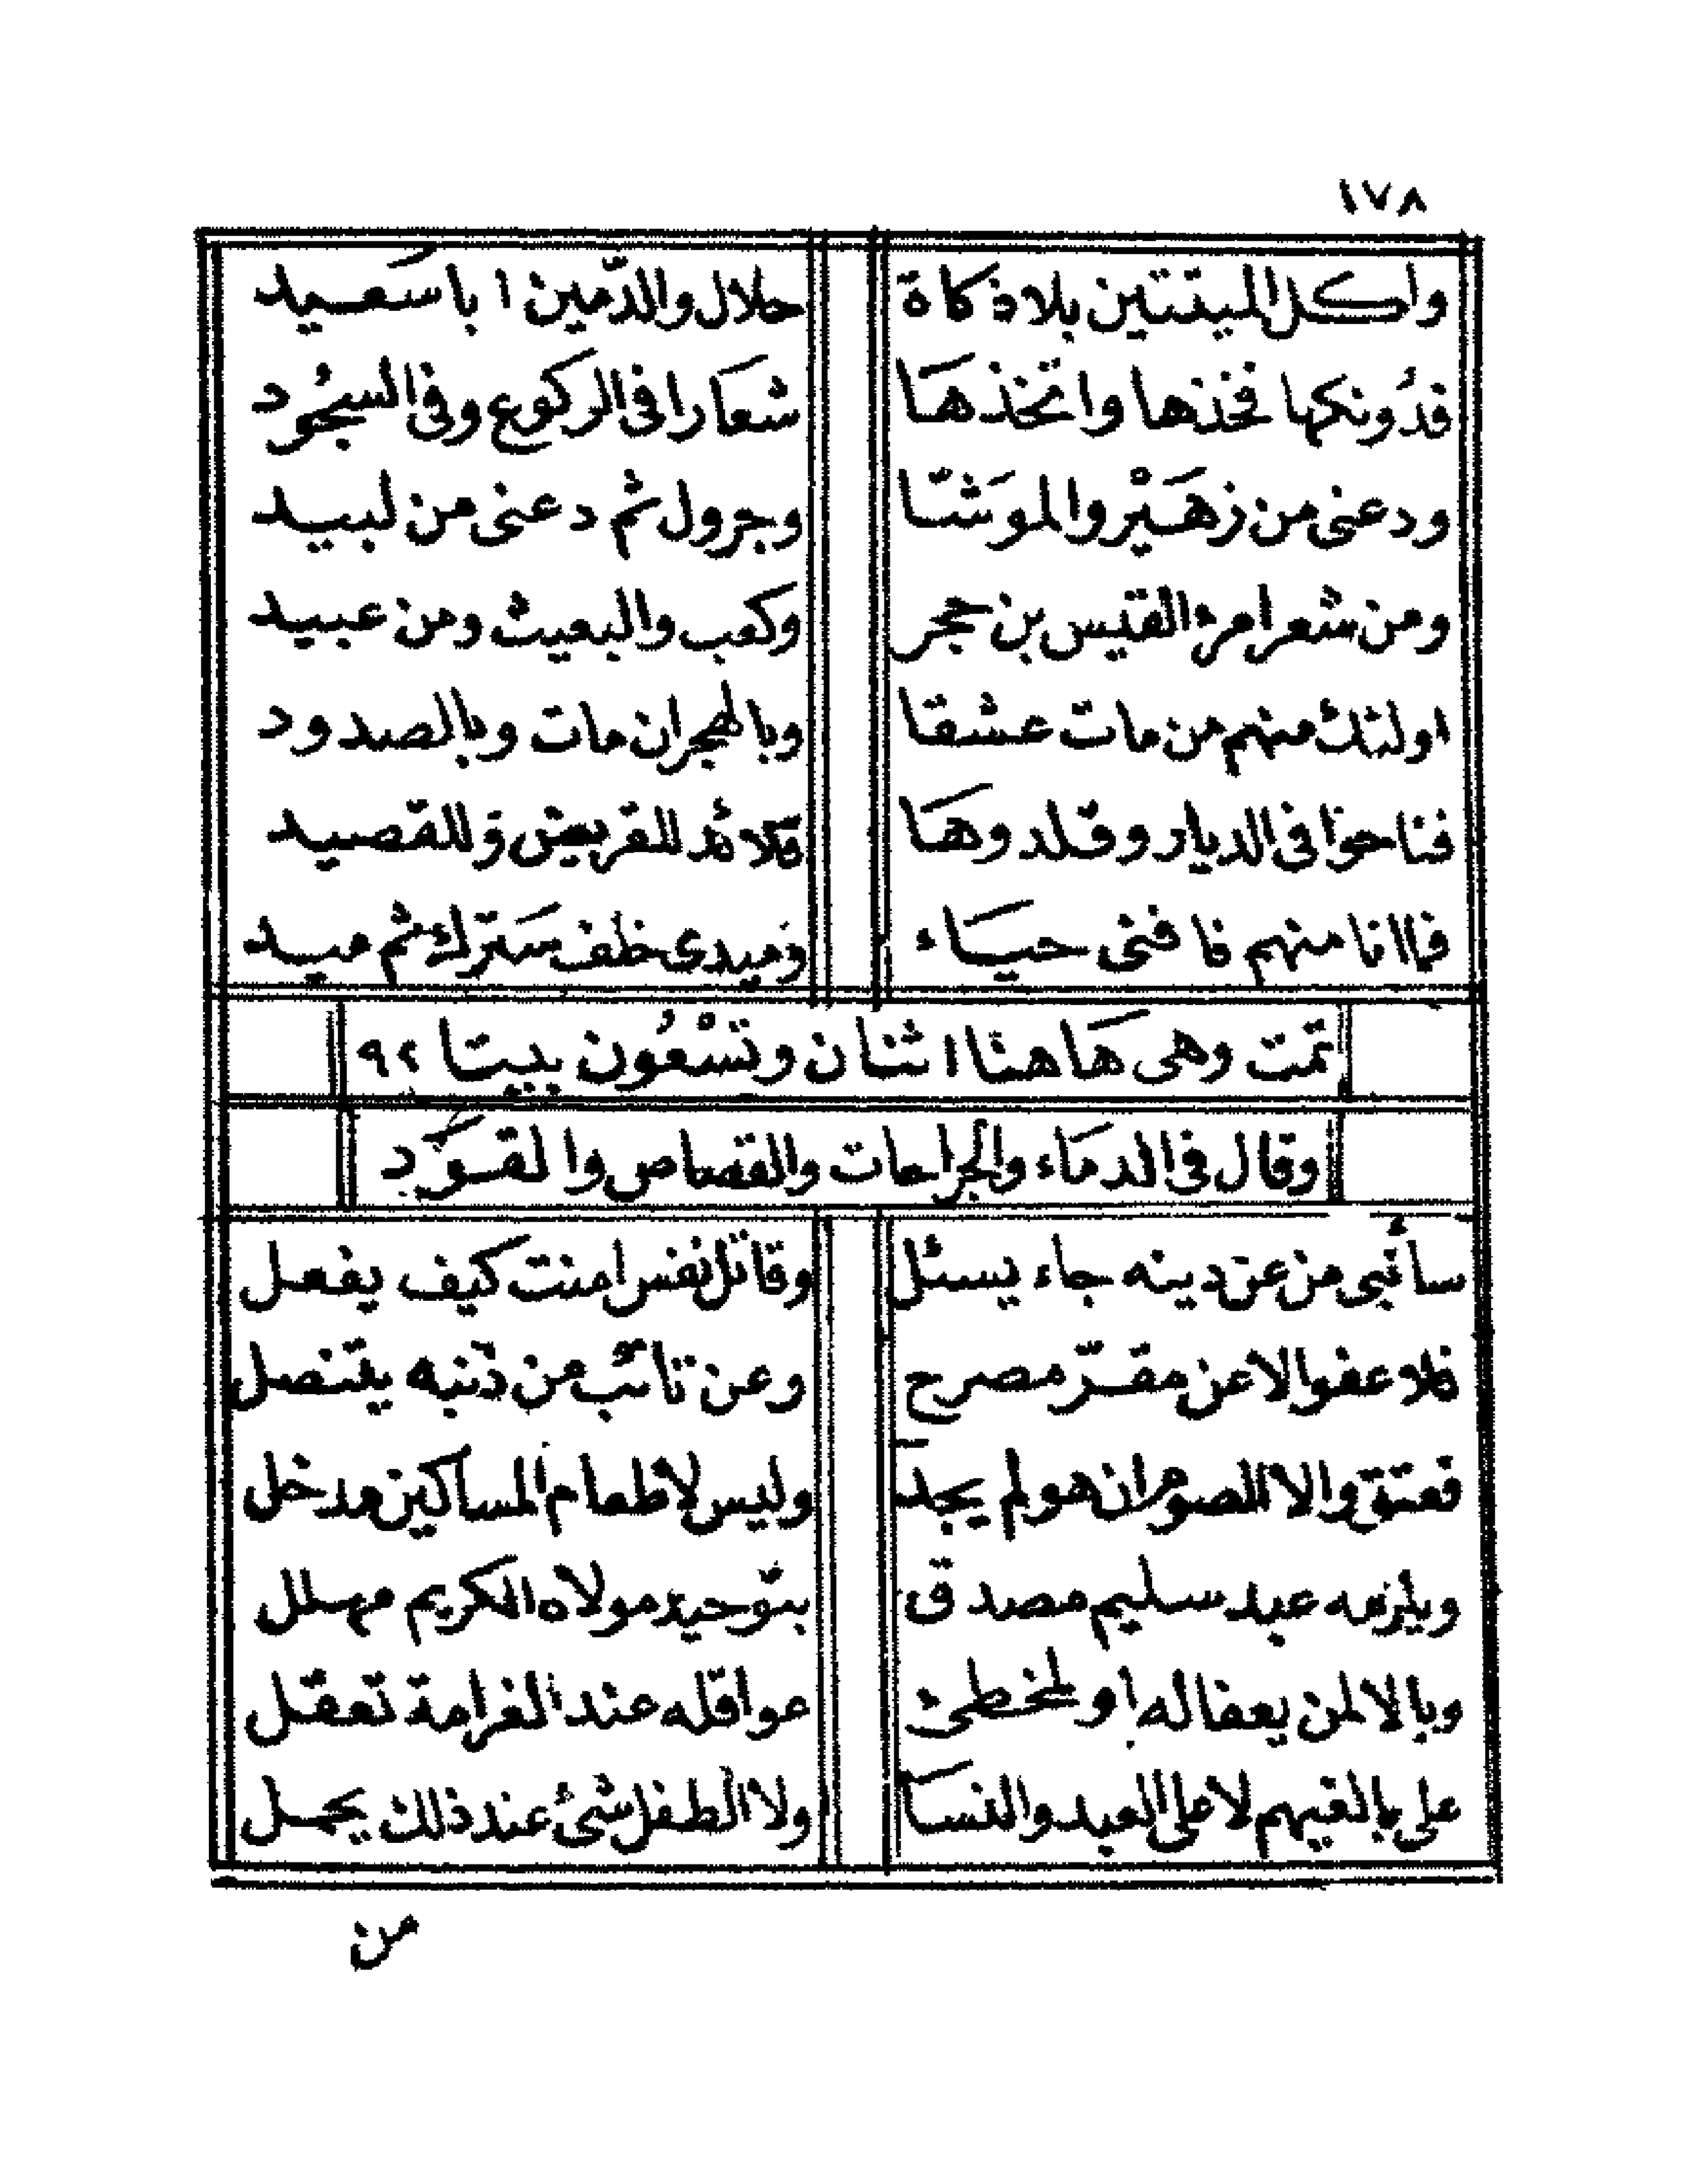 ١٧٨
واكل الميتتين بلا ذكاة حلال والدّمين ابا سَعيد
فدُونكها فخذها واتخذهَا شعَارا فى الركوع وفى السجُود
ودعنى من زهَيْر والموَشّا وجرول ثم دعنى من لبيد
ومن شعر امرء القيس بن حجر وكعب والبعيث ومن عبيد
اولئك منهم من مات عشقا وبالهجران مات وبالصدود
فناحوا فى الديار وقلدوهَا قلائد للقريض وللقصيد
فما انا منهم فافنى حيَاء وميدى خلف سَترك ثم ميد
تمت وهى هَاهنا اثنان وتسْعُون بيتا ٩٢
وقال فى الدمَاء والجراحات والقصاص والقوَد
سأنبى من عن دينه جاء يسئل وقاتل نفس امنت كيف يفعل
فلا عفو الا عن مقرّ مصرح وعن تائب من ذنبه يتنصل
فعتق والا الصوم ان هو لم يجد وليس لاطعام المساكين مدخل
ويلزمه عبد سليم مصدق بتوحيد مولاه الكريم مهلل
وبالا لمن يعفا له او لمخطئ عواقله عند الغرامة تعقل
على بالغيهم لا على العبد والنسَا ولا الطفل شئ عند ذلك يحمل
من